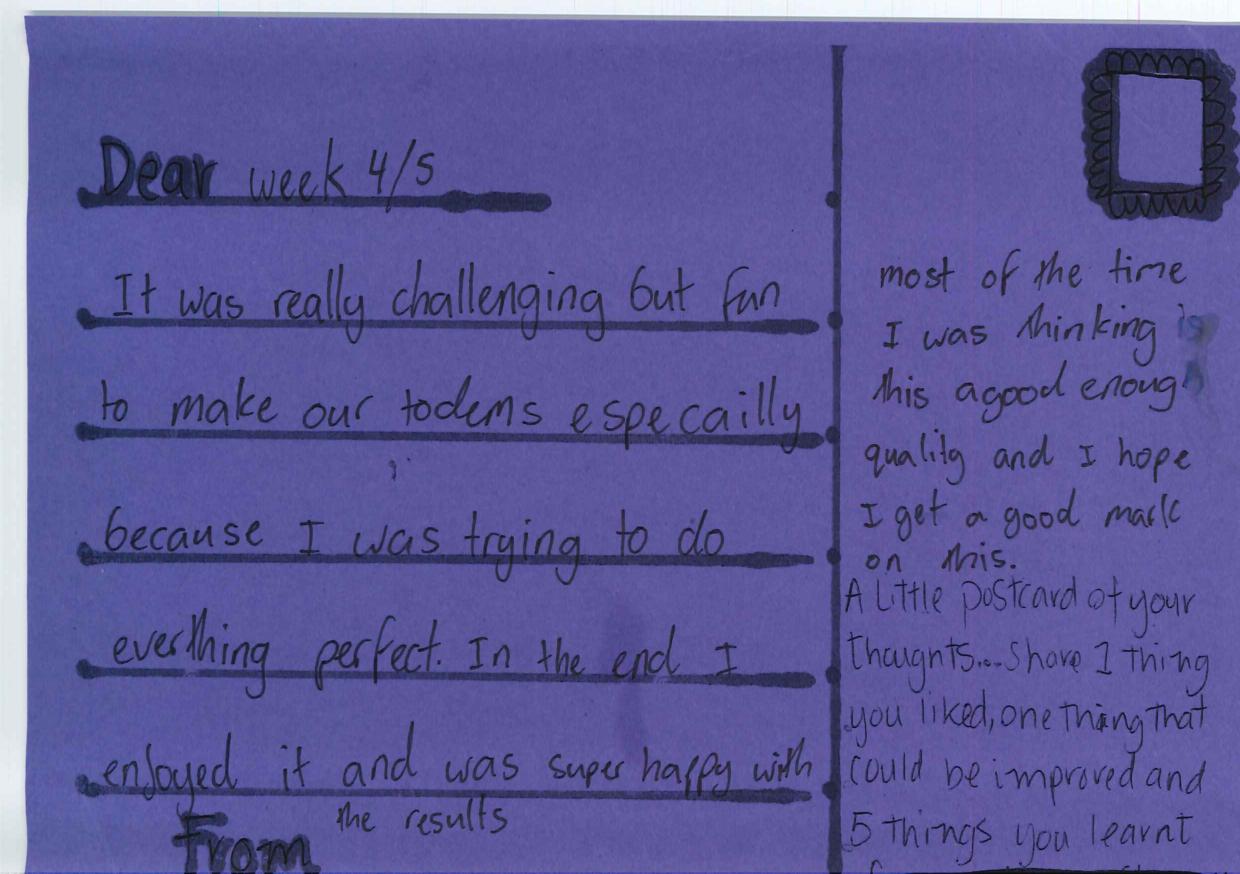 Dear week 4/5
It was really challenging but fun
to make our todems especailly
because I was trying to do
everthing perfect. In the end I
enjoyed it and was super happy with
the results
From
most of the time
I was thinking is
this a good enough
quality and I hope
I get a good mark
on this.
A Little postcard of your
thoughts... Share 1 thing
you liked, one thing that
could be improved and
5 things you learnt